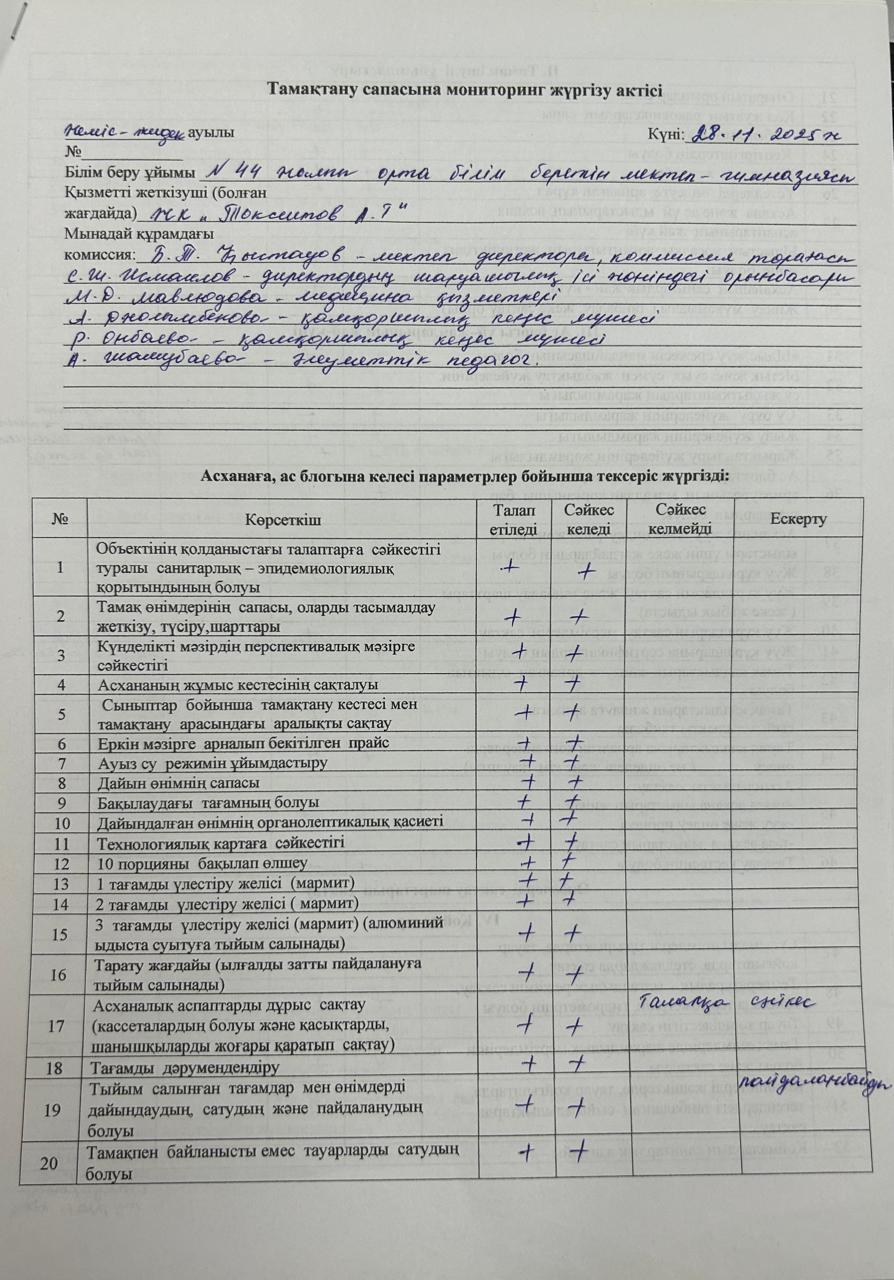 Тамақтану сапасына мониторинг жүргізу актісі
Жеміс-жидек ауылы Күні: 28.11.2025ж
№
Білім беру ұйымы N 44 жалпы орта білім беретін мектеп-гимназиясы
Қызметті жеткізуші (болған
жағдайда) ЖК „Токсеитов А.Т"
Мынадай құрамдағы
комиссия: Б.Т. Қыстауов - мектеп директоры, коммиссия торағасы
С.Ш. Исмаилов - директордың шаруашылық ісі жөніндегі орынбасары
М.Д. Мавлюдова - медицина қызметкері
А. Джолымбекова - қамқоршылық кеңес мүшесі
Р. Онбаева - қамқоршылық кеңес мүшесі
А. Шамубаева - әлеуметтік педагог.
Асханаға, ас блогына келесі параметрлер бойынша тексеріс жүргізді:
№ Көрсеткіш Талап етіледі Сәйкес келеді Сәйкес келмейді Ескерту
1 Объектінің қолданыстағы талаптарға сәйкестігі
туралы санитарлық – эпидемиологиялық + +
қорытындының болуы
2 Тамақ өнімдерінің сапасы, оларды тасымалдау + +
жеткізу, түсіру,шарттары
3 Күнделікті мәзірдің перспективалық мәзірге + +
сәйкестігі
4 Асхананың жұмыс кестесінің сақталуы + +
5 Сыныптар бойынша тамақтану кестесі мен + +
тамақтану арасындағы аралықты сақтау
6 Еркін мәзірге арналып бекітілген прайс + +
7 Ауыз су режимін ұйымдастыру + +
8 Дайын өнімнің сапасы + +
9 Бақылаудағы тағамның болуы + +
10 Дайындалған өнімнің органолептикалық қасиеті + +
11 Технологиялық картаға сәйкестігі + +
12 10 порцияны бақылап өлшеу + +
13 1 тағамды үлестіру желісі (мармит) + +
14 2 тағамды үлестіру желісі ( мармит) + +
15 3 тағамды үлестіру желісі (мармит) (алюминий + +
ыдыста суытуға тыйым салынады)
16 Тарату жағдайы (ылғалды затты пайдалануға + +
тыйым салынады)
17 Асханалық аспаптарды дұрыс сақтау Талапқа сәйкес
(кассеталардың болуы және қасықтарды, + +
шанышқыларды жоғары қаратып сақтау)
18 Тағамды дәрумендендіру + +
19 Тыйым салынған тағамдар мен өнімдерді пайдаланбайды
дайындаудың, сатудың және пайдаланудың + +
болуы
20 Тамақпен байланысты емес тауарларды сатудың + +
болуы